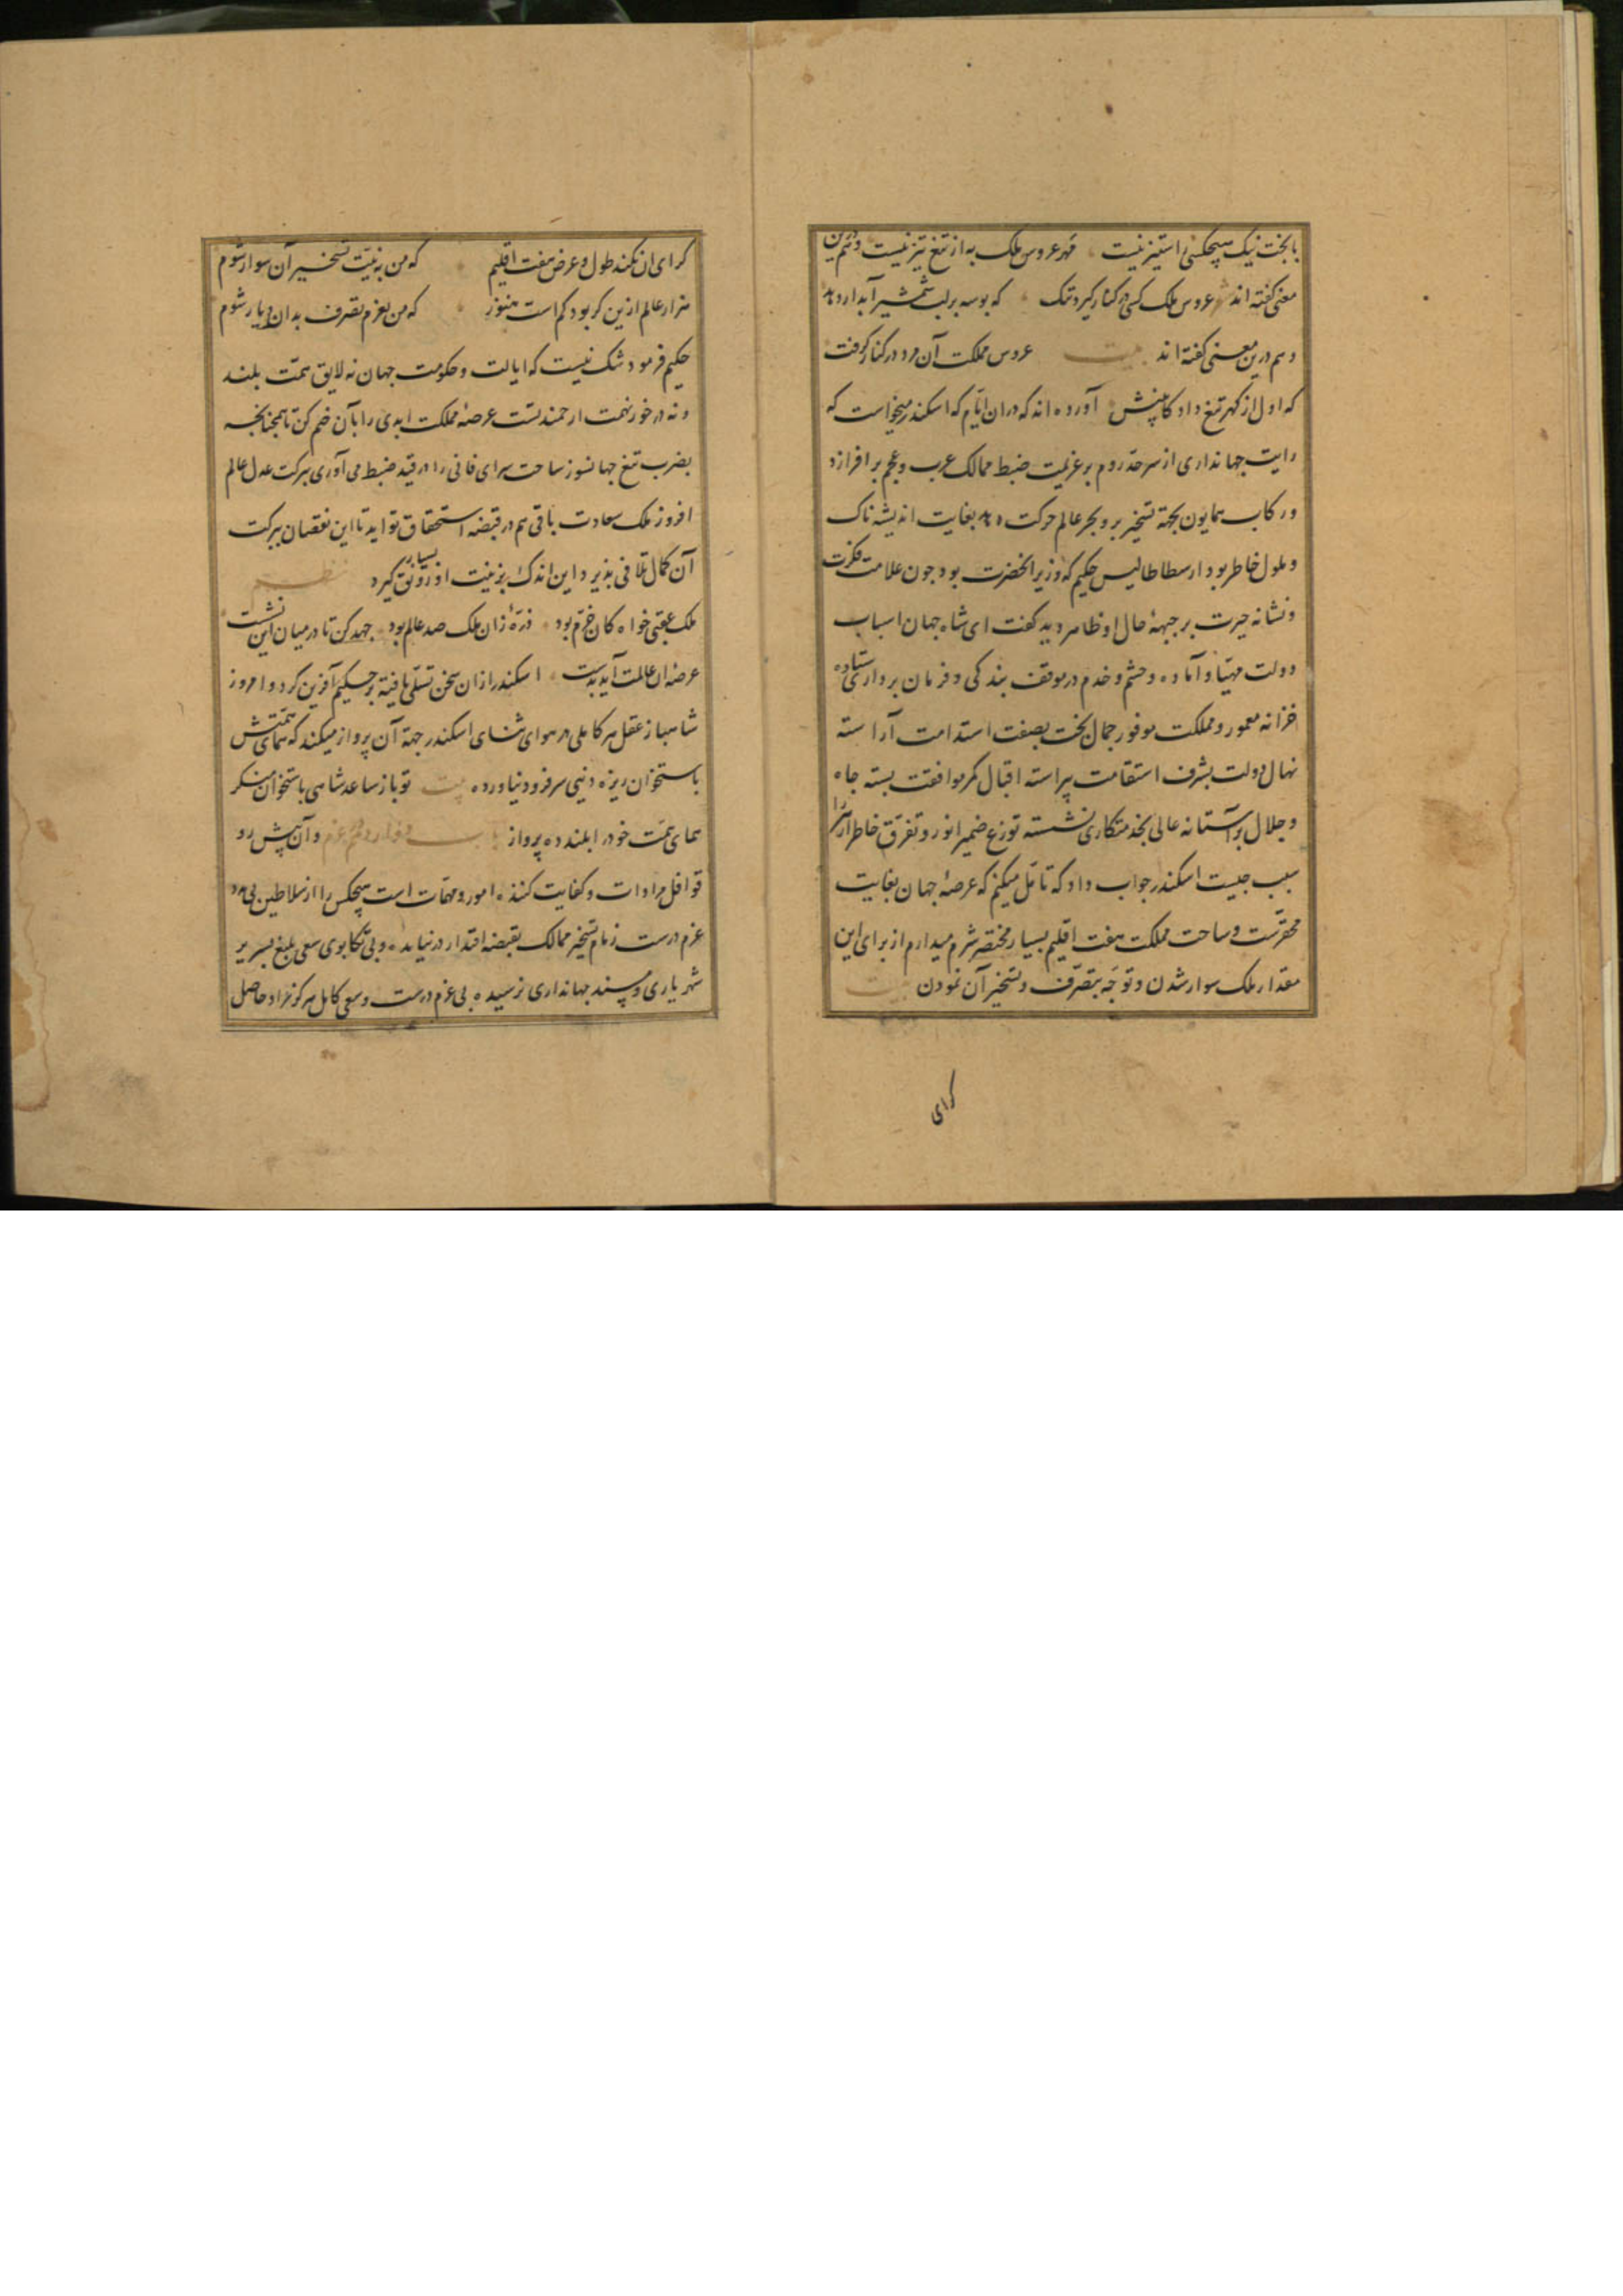 با بخت نیک هیچکس را ستیز نیست مهر عروس ملک به از تیغ تیز نیست و هم درین
معنی گفته اند عروس ملک کسی در کنار گیرد تنک که بوسه بر لب شمشیر آبدار دهد
و هم درین معنی گفته اند بیت عروس مملکت آن مرد در کنار گرفت
که اول از گهر تیغ داد کابینش آورده اند که دران ایام که اسکندر میخواست که
رایت جهانداری از سرحد روم بر عزیمت ضبط ممالک عرب و عجم بر افرازد
و رکاب همایون بجهة تسخیر بر و بحر عالم حرکت دهد بغایت اندیشه ناک
و ملول خاطر بود ارسطاطالیس حکیم که وزیر آنحضرت بود چون علامت فکرت
و نشانه حیرت بر جبههٔ حال او ظاهر دید کفت ای شاه جهان اسباب
دولت مهیا و آماده و حشم و خدم در موقف بندکی و فرمان برداری ستاده
خزانه معمور و مملکت موفور جمال بخت بصفت استدامت آراسته
نهال دولت بشرف استقامت پیراسته اقبال کمر موافقت بسته جاه
و جلال بر آستانه عالی بخدمتکاری نشسته توزع ضمیر انور و تفرق خاطر ازهر را
سبب جیست اسکندر جواب داد که تامل میکنم که عرصهٔ جهان بغایت
محقرست و ساحت مملکت هفت اقلیم بسیار مختصر شرم میدارم از برای این
مقدار ملک سوار شدن و توجه بتصرف و تسخیر آن نمودن بیت
کرای
کرای ان نکند طول و عرض هفت اقلیم که من به نیت تسخیر آن سوار شوم
هزار عالم ازین کر بود کم است هنوز که من بعزم تصرف بدان دیار شوم
حکیم فرمود شک نیست که ایالت و حکومت جهان نه لایق همت بلند
و نه در خور نهمت ارجمند تست عرصهٔ مملکت ابدی را با آن ضم کن تا همچنانجه
بضرب تیغ جهانسوز ساحت سرای فانی را در قید ضبط می آوری ببرکت عدل عالم
افروز ملک سعادت باقی هم در قبضهٔ استحقاق تو اید تا این نقصان ببرکت
آن کمال تلافی پذیرد و این اندک بزینت او رونق بسیار گیرد نظم
ملک عقبی خواه کان خرم بود ذرهٔ زان ملک صد عالم بود جهد کن تا در میان این نشست
عرصهٔ ان عالمت آید بدست اسکندر ازان سخن تسلی یافته بر حکیم آفرین کرد و امروز
شاهباز عقل هر کاملی در هوای ثنای اسکندر جهة آن پرواز میکند که همای همتش
باستخوان ریزه دنیی سر فرود نیاورده بیت تو باز ساعد شاهی باستخوان منکر
همای همت خود را بلند ده پرواز و آن پیش رو
قوافل مرادات و کفایت کننده امور و مهمات است هیچکس را از سلاطین بی مدد
عزم درست زمام تسخیر ممالک بقبضه اقتدار در نیامده و بی تکاپوی سعی بلیغ بسریر
شهریاری و مسند جهانداری نرسیده بی عزم درست و سعی کامل هرکز مراد حاصل